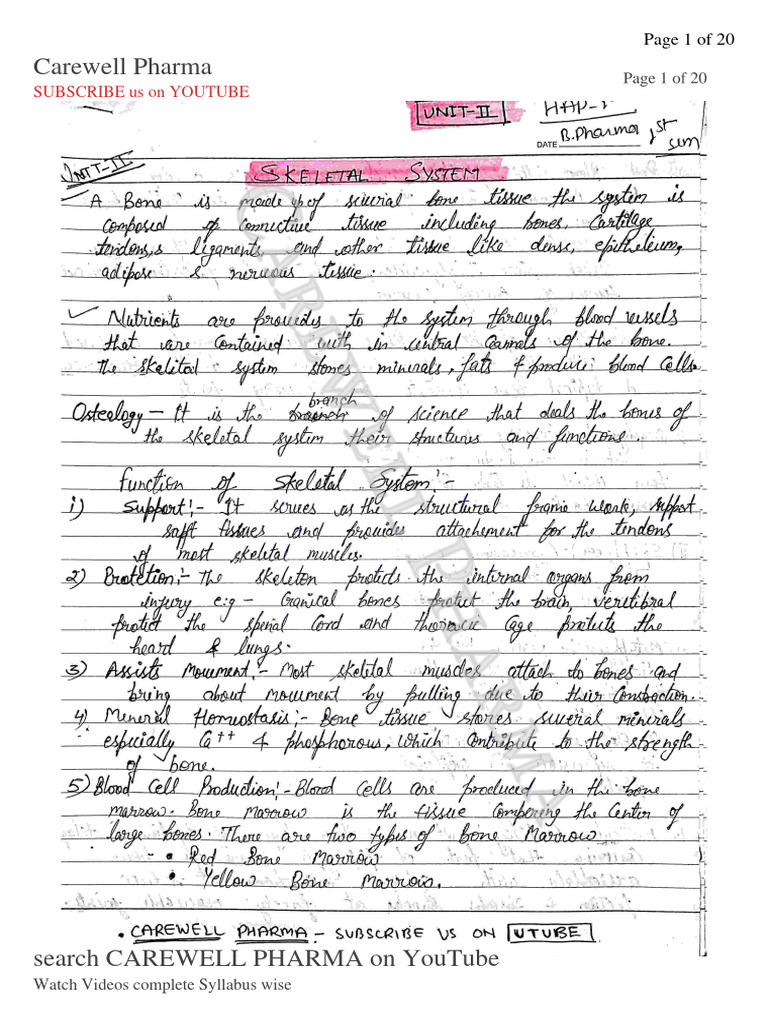 Page 1 of 20
Carewell Pharma
Page 1 of 20
SUBSCRIBE us on YOUTUBE
UNIT-II
HAP-I
DATE B.Pharma 1st sem
UNIT-II
SKELETAL SYSTEM
A Bone is made up of several bone tissue the system is
composed of connective tissue including bones, Cartilage
tendons, ligaments, and other tissue like dense, epithelium,
adipose & nervous tissue.
Nutrients are provides to the system through blood vessels
that are contained with in central cannals of the bone.
The skelital system stones minerals, fats & produce blood cells.
branch
Osteology - It is the of science that deals the bones of
the skeletal system their structures and functions.
Function of Skeletal System:-
i) Support:- It serves as the structural frame work, support
saft tissues and provides attachement for the tendons
of most skeletal muscles.
2) Protetion:- The skeleton protects the internal organs from
injury e:g - Cranical bones protect the brain, veritibral
protect the spenal Cord and thoracic Cage protects the
heard & lungs.
3) Assists Movement:- Most skeletal muscles attach to bones and
bring about movement by pulling due to their Constraction.
4) Meneral Homeostasis:- Bone tissue stores several minirals
especially Ca++ & phosphorous, which contribute to the strength
of bone.
5) Blood Cell Production:- Blood Cells are produced in the bone
marrow. Bone Marrow is the tissue Compering the Center of
large bones. There are two types of Bone Marrow
- • Red Bone Marrow
• Yellow Bone Marrow.
• CAREWELL PHARMA - SUBSCRIBE US ON UTUBE
CAREWELL PHARMA
search CAREWELL PHARMA on YouTube
Watch Videos complete Syllabus wise